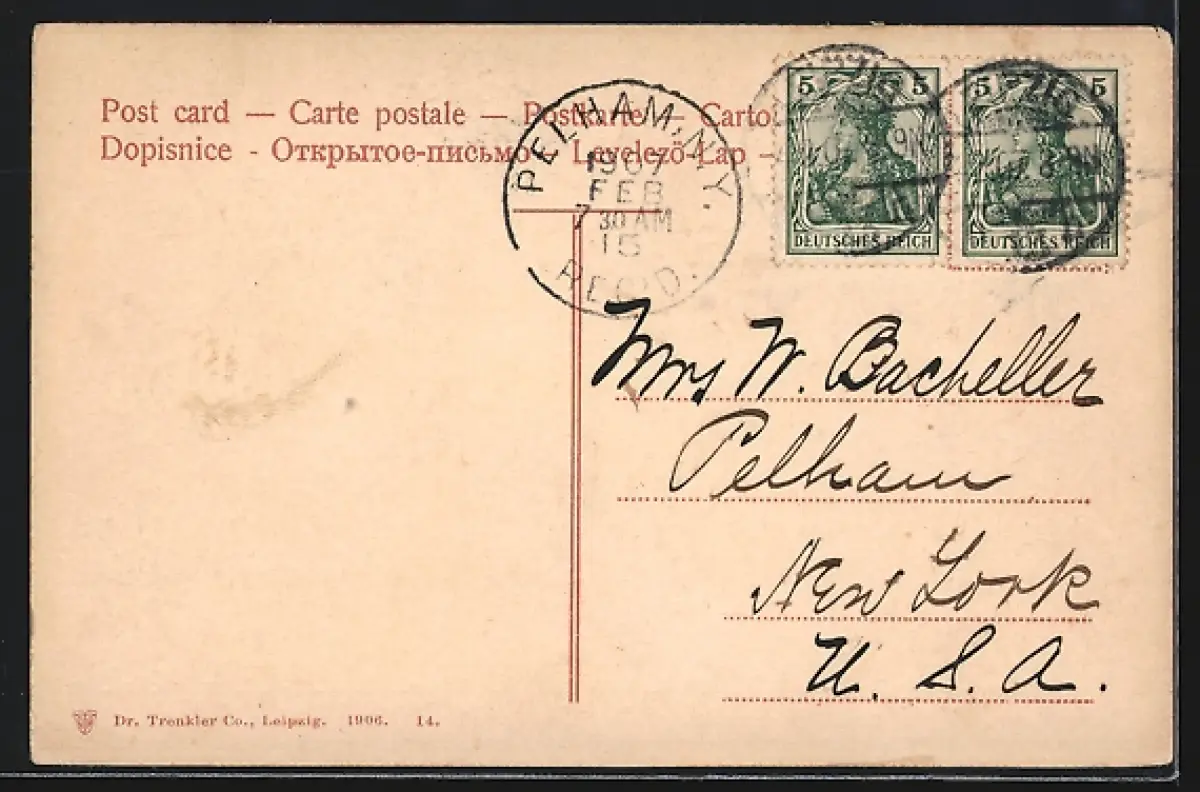 Post card — Carte postale — Postkarte — Carto
Dopisnice - Открытое-письмо - Levelező-Lap —
PELHAM, N.Y.
1907
FEB
7 30 AM
15
REC'D.
5 5
DEUTSCHES REICH
5 5
DEUTSCHES REICH
Mrs W. Bacheller
Pelham
New York
U. S. A.
Dr. Trenkler Co., Leipzig. 1906. 14.